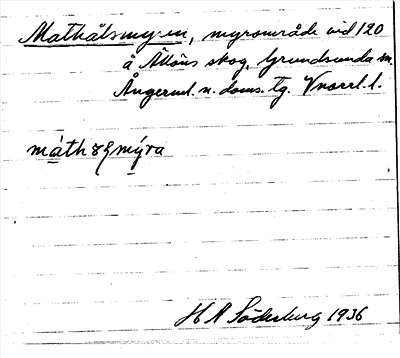 Mathålsmyren, myrområde vid 120
å Ällöns skog, Grundsunda sn.
Ångerml. n. doms. tg. Vnorrl. l.
H A Söderberg 1936